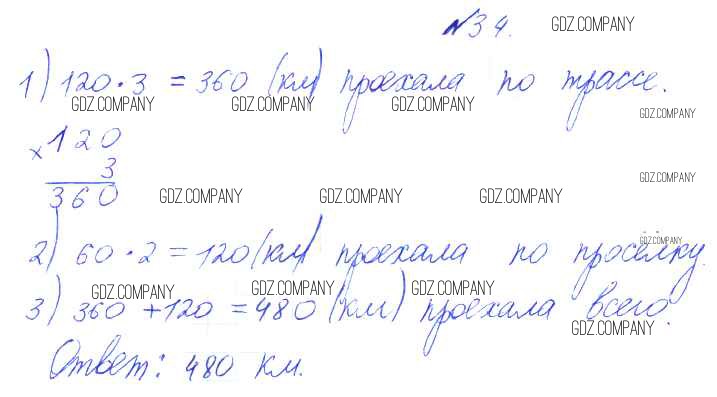 №34. GDZ.COMPANY
1) 120 · 3 = 360 (км) проехала по трассе.
GDZ.COMPANY GDZ.COMPANY GDZ.COMPANY GDZ.COMPANY
×120
3 GDZ.COMPANY
360 GDZ.COMPANY GDZ.COMPANY GDZ.COMPANY
GDZ.COMPANY
2) 60 · 2 = 120 (км) проехала по просёлку.
GDZ.COMPANY GDZ.COMPANY GDZ.COMPANY
3) 360 + 120 = 480 (км) проехала всего.
GDZ.COMPANY
Ответ: 480 км.